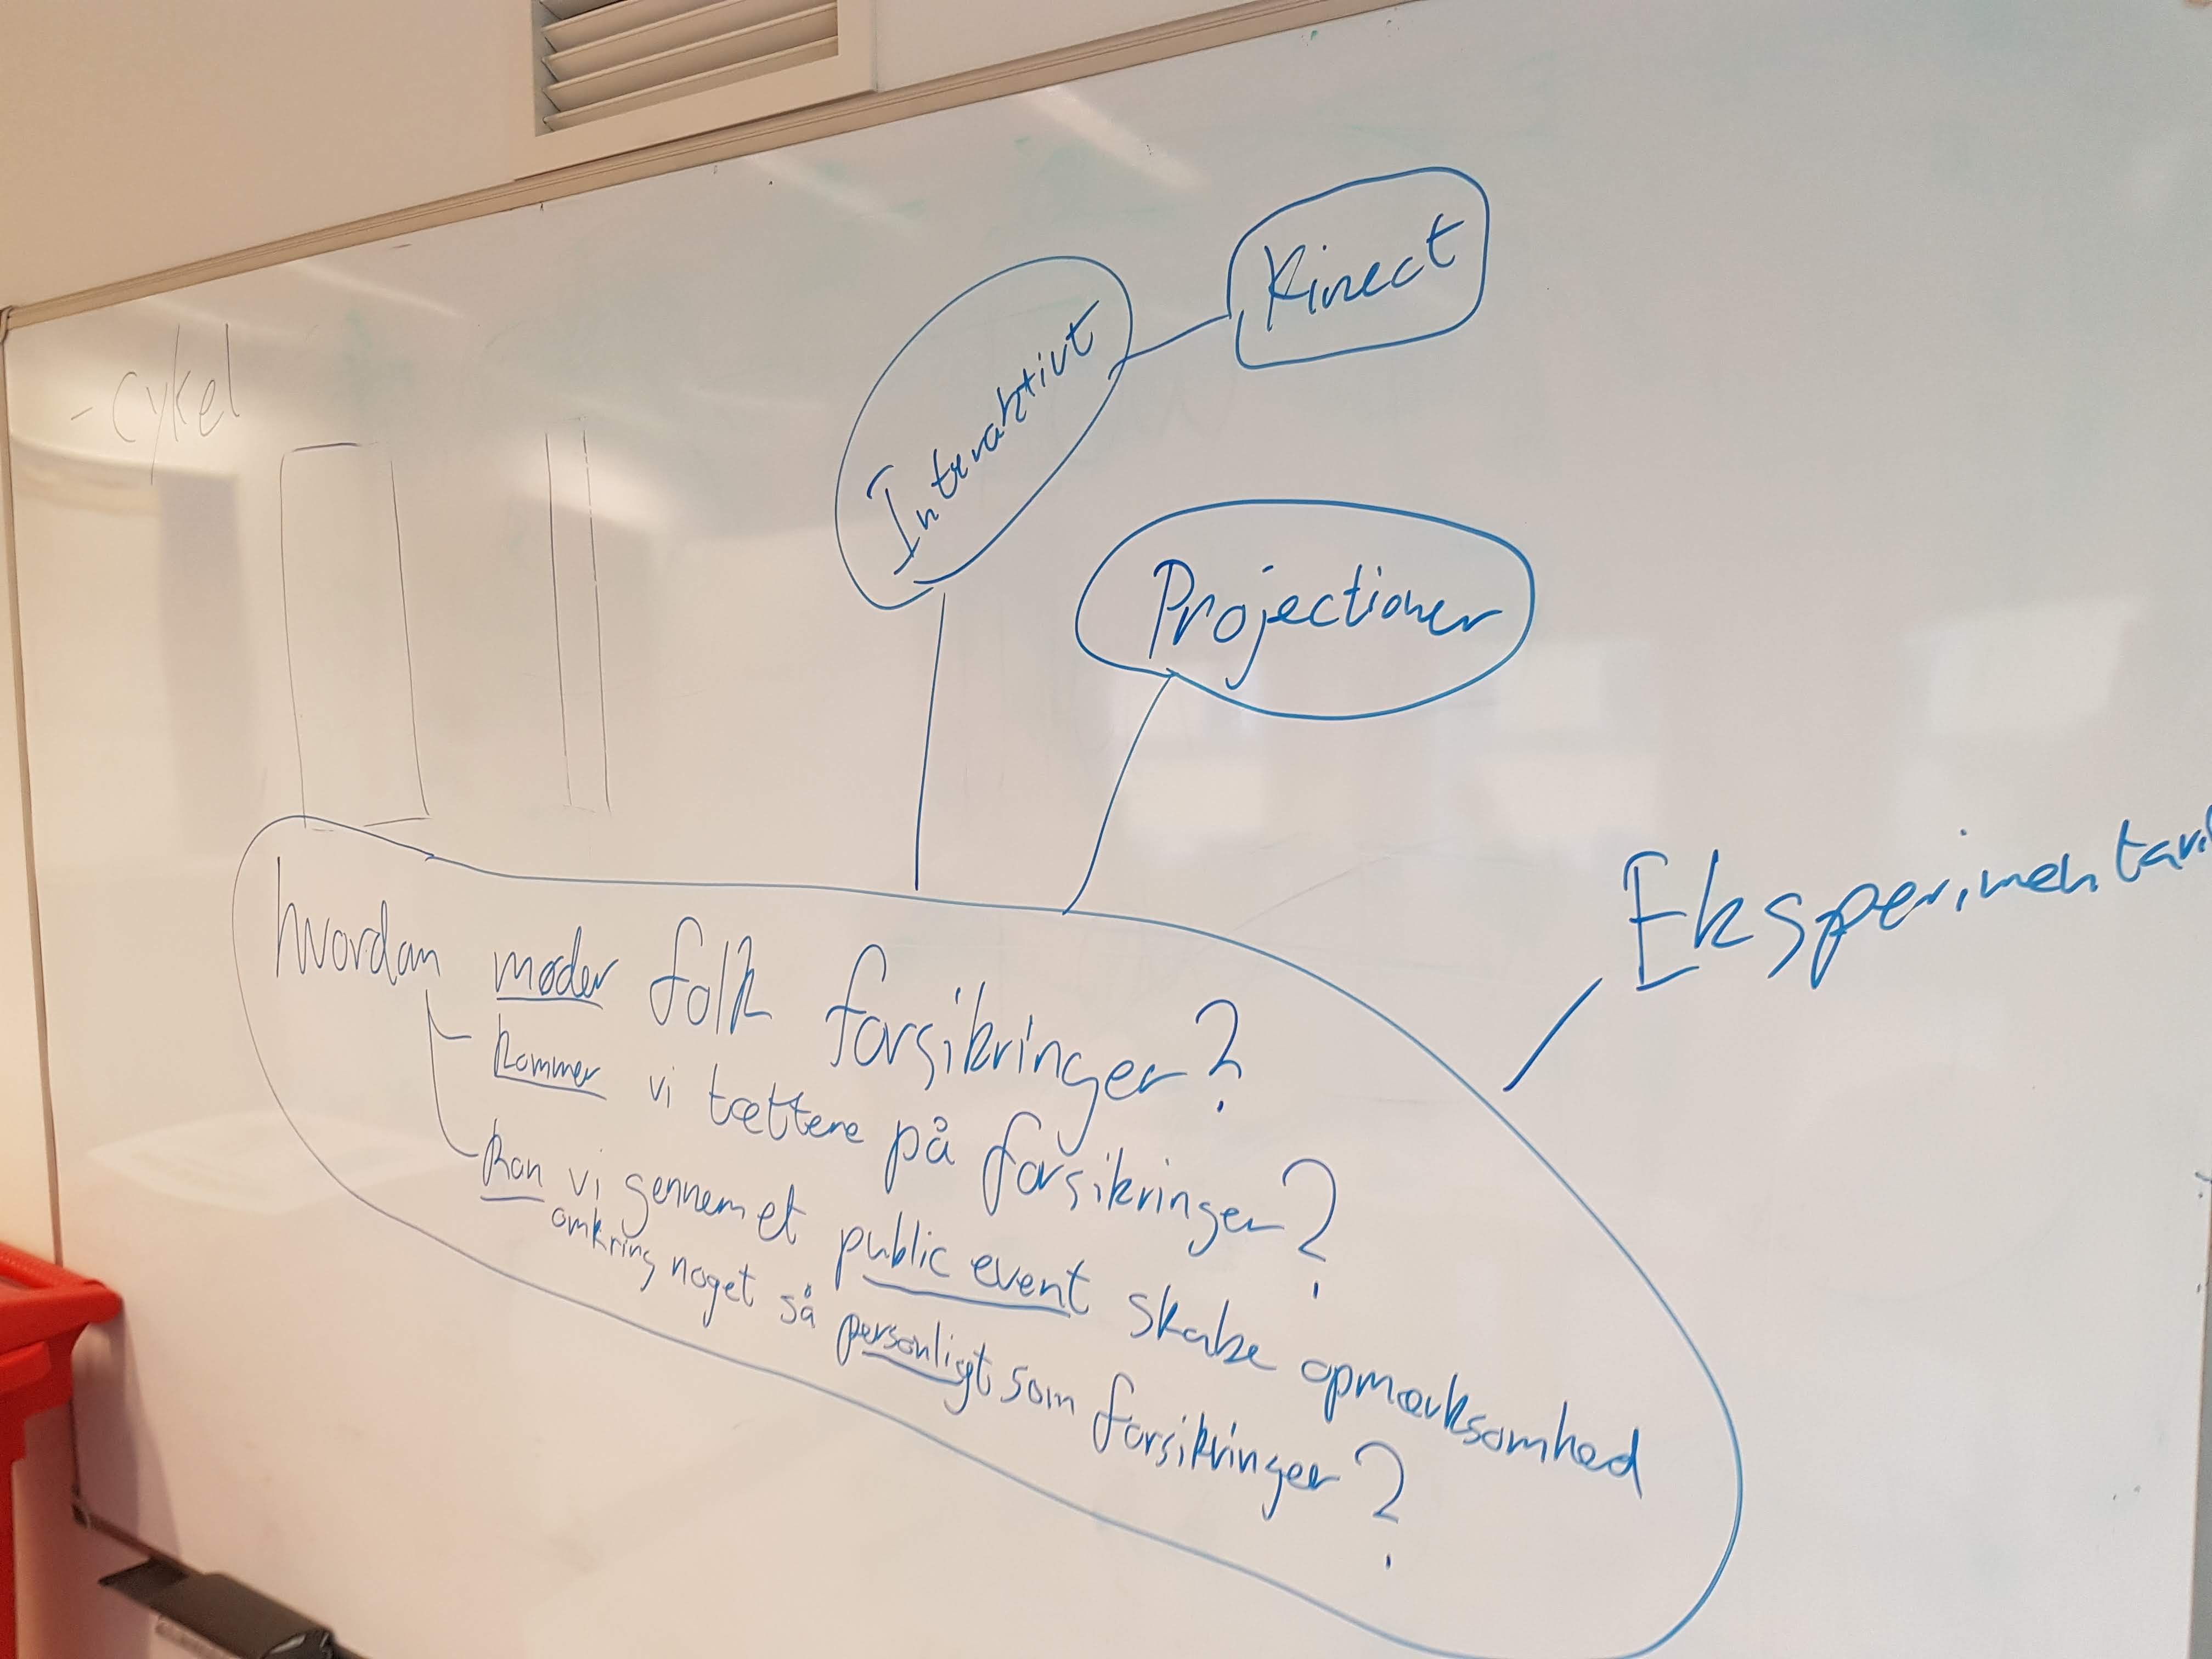 - cykel
Kinect
Interaktivt
Projectioner
Eksperimentari
hvordan møder folk forsikringer?
kommer vi tættere på forsikringer?
kan vi gennem et public event skabe opmærksomhed
omkring noget så personligt som forsikringer?